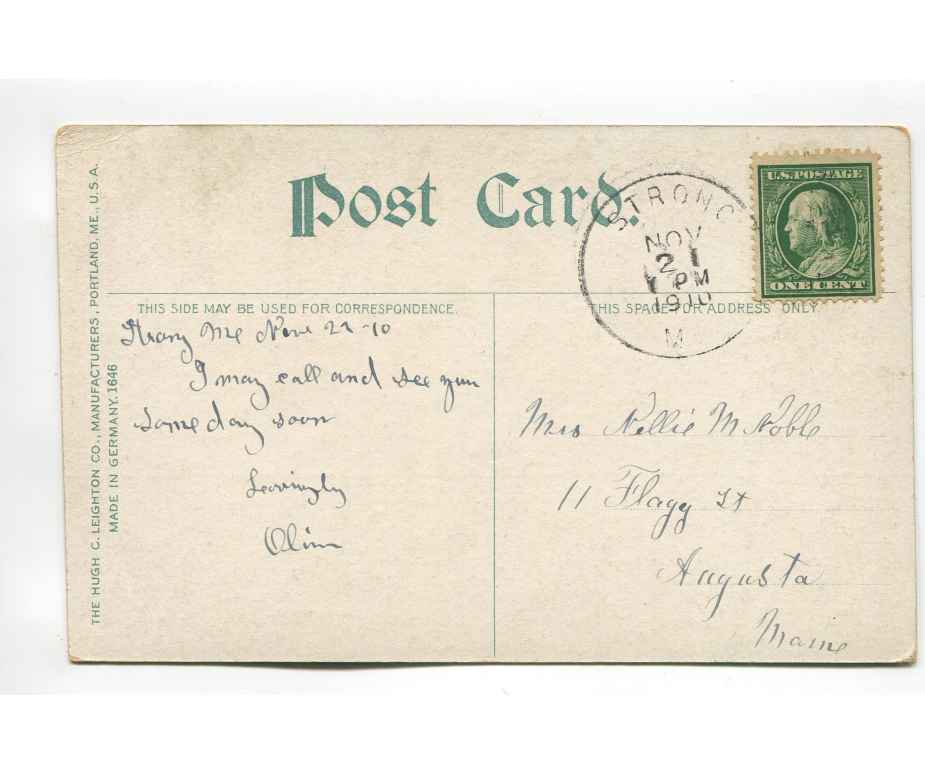 Post Card.
U.S. POSTAGE
ONE CENT
STRONG
NOV
21
PM
1910
M
THIS SIDE MAY BE USED FOR CORRESPONDENCE.
THIS SPACE FOR ADDRESS ONLY
THE HUGH C. LEIGHTON CO., MANUFACTURERS, PORTLAND, ME., U.S.A.
MADE IN GERMANY. 1646
Strong Me Nov 21-10
I may call and see you
some day soon
Lovingly
Mrs Nellie M Noble
11 Flagg St
Augusta
Maine